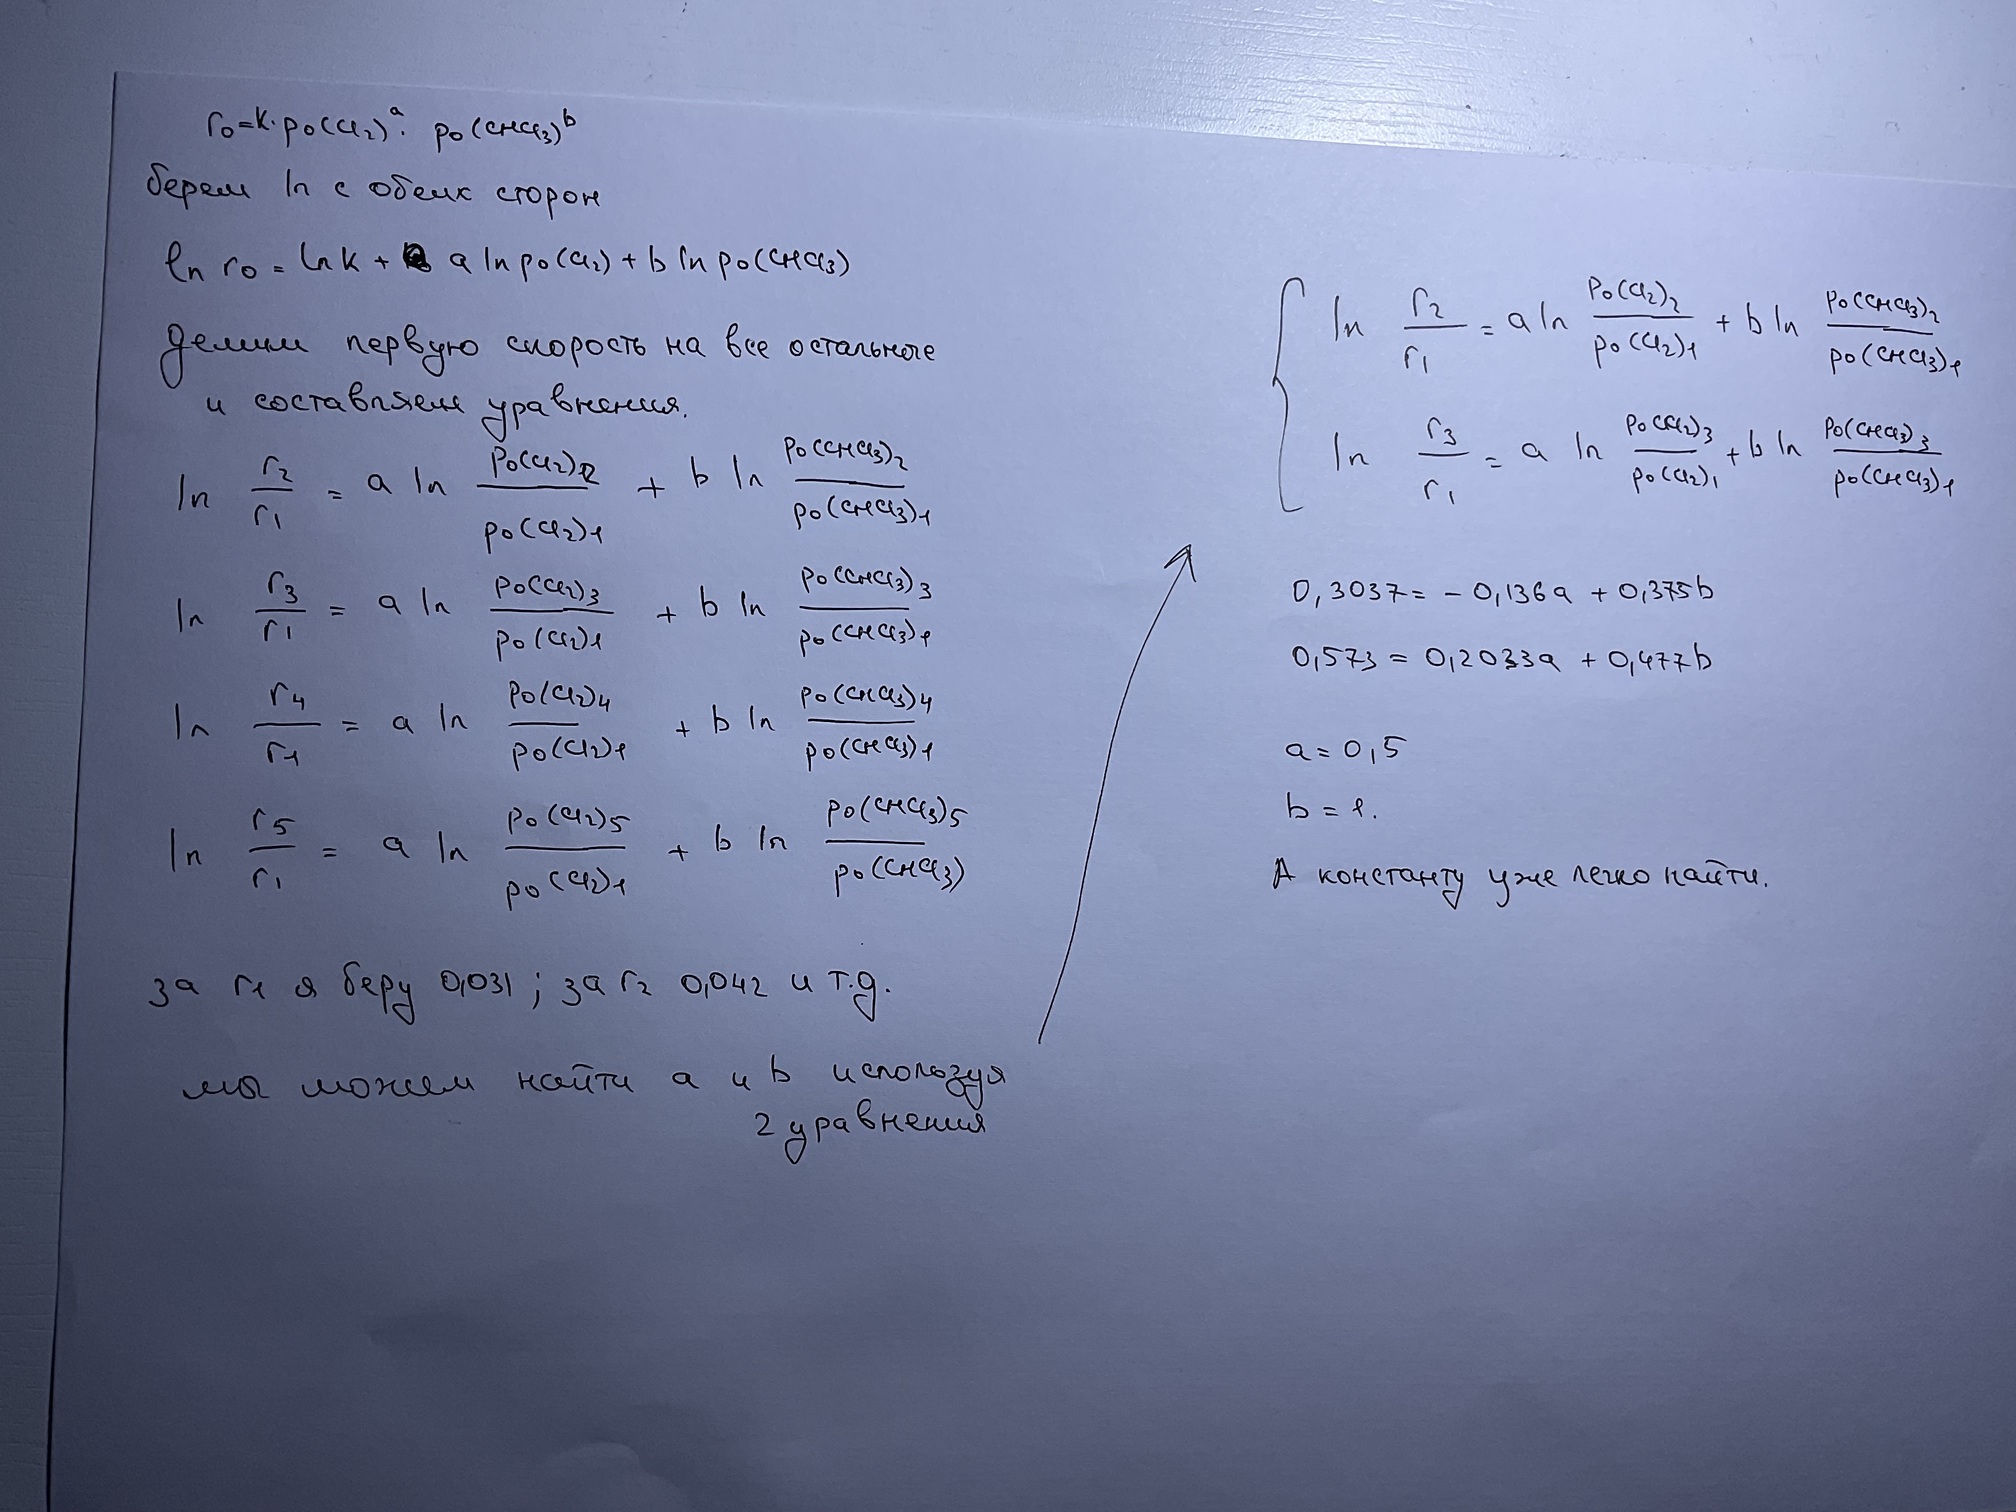 r0=k·p0(Cl2)^a · p0(CHCl3)^b
берем ln с обеих сторон
ln r0 = ln k + a ln p0(Cl2) + b ln p0(CHCl3)
Делим первую скорость на все остальные
и составляем уравнения.
ln r2/r1 = a ln p0(Cl2)2/p0(Cl2)1 + b ln p0(CHCl3)2/p0(CHCl3)1
ln r3/r1 = a ln p0(Cl2)3/p0(Cl2)1 + b ln p0(CHCl3)3/p0(CHCl3)1
ln r4/r1 = a ln p0(Cl2)4/p0(Cl2)1 + b ln p0(CHCl3)4/p0(CHCl3)1
ln r5/r1 = a ln p0(Cl2)5/p0(Cl2)1 + b ln p0(CHCl3)5/p0(CHCl3)
за r1 я беру 0,031; за r2 0,042 и т.д.
мы можем найти a и b используя
2 уравнения
ln r2/r1 = a ln p0(Cl2)2/p0(Cl2)1 + b ln p0(CHCl3)2/p0(CHCl3)1
ln r3/r1 = a ln p0(Cl2)3/p0(Cl2)1 + b ln p0(CHCl3)3/p0(CHCl3)1
0,3037 = - 0,136a + 0,375b
0,573 = 0,2033a + 0,477b
a = 0,5
b = 1.
А константу уже легко найти.